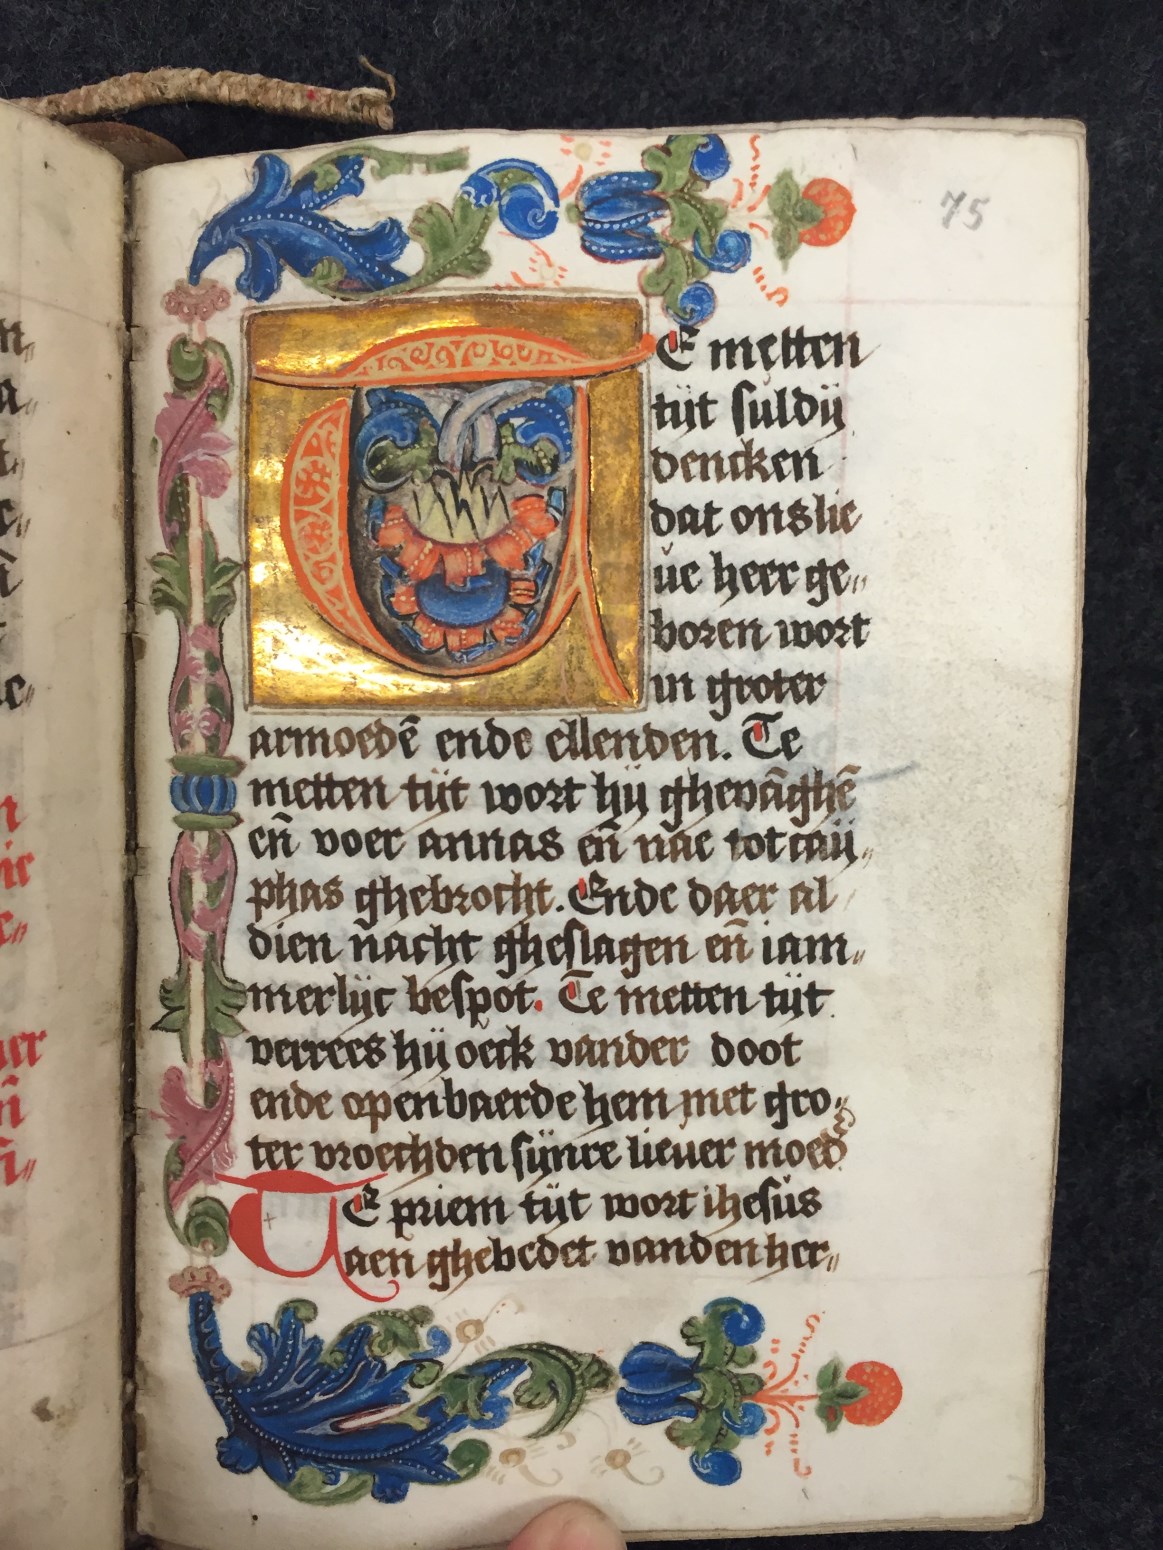 75
TE metten
tijt suldij
dencken
dat ons lie
ue heer ge„
boren wort
in groter
armoedē ende ellenden. Te
metten tijt wort hij ghevāghē
eñ voer annas eñ nae tot caij„
phas ghebrocht. Ende daer al
dien nacht gheslagen eñ iam„
merlijc bespot. Te metten tijt
verrees hij oeck vander doot
ende openbaerde hem met gro„
ter vroechden sijnre liever moed̄
TE priem tijt wort ihesus
aen ghebedet vanden her„